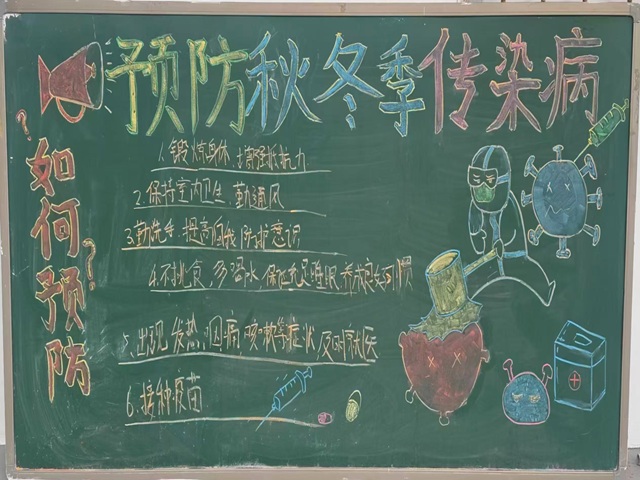 预防秋冬季传染病
如何预防
??
1.锻炼身体,增强抵抗力
2.保持室内卫生 勤通风
3.勤洗手 提高自我防护意识
4.不挑食,多喝水,保证充足睡眠 养成良好习惯
5.出现发热,咽痛,咳嗽等症状及时就医
6.接种疫苗